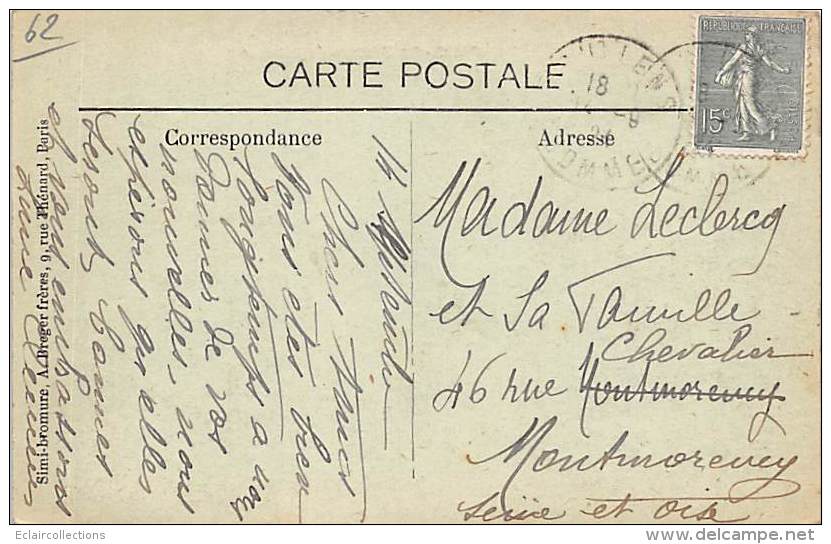 62
CARTE POSTALE
REPUBLIQUE FRANÇAISE
15c
POSTES
18
Correspondance
Adresse
14 Septembre
Chers Amis
Vous êtes bien
longtemps a vous
donner de vos
nouvelles, nous
espérons qu'elles
seront bonnes
et vous embrassons
Madame Leclercq
et Sa Famille
Chevalier
46 rue Montmorency
Montmorency
Seine et Oise
Simi-bromure, A. Breger frères, 9, rue Thénard, Paris
Eclaircollections
delcampe.net